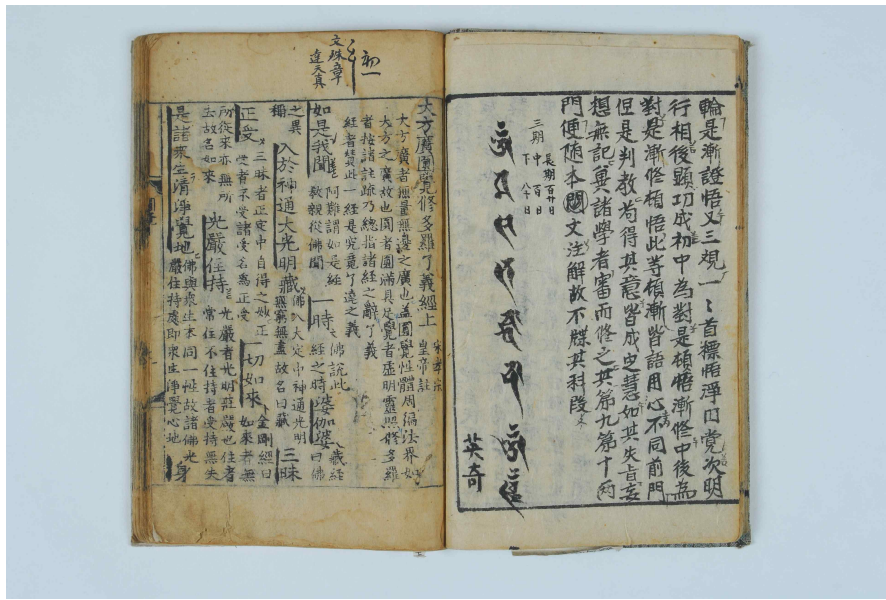 輪是漸證悟又三觀一〻首標悟淨円覺次明
行相後顯功成初中為對是頓悟漸修中後為
對是漸修頓悟此等頓漸皆語用心不同前門
但是判教苟得其意皆成定慧如其失旨妄
想無記冀諸學者審而修之其第九第十兩
門便隨本國文注解故不牒其科段
長期百廿日
三期中百日
下八十日
英奇
初一
文殊章
達天真
大方廣圓覺修多羅了義經上 宋孝宗皇帝註
大方廣者無量無邊之廣也盖圓覺性體周徧法界如
大方之廣故也圓者圓滿具足覺者虛明靈照修多羅
者按諸註疏乃總指諸經之辭了義
經者贊此一經是究竟了達之義
如是我聞 阿難謂如是經教親從佛聞 一時 佛說此經之時 婆伽婆 藏經曰佛
之異稱 入於神通大光明藏 佛入大定中神通光明無窮無盡故名曰藏 三昧
正受 三昧者正定中自得之妙正受者不受諸受名為正受 一切如來 金剛經曰如來者無
所從來亦無所去故名如來 光嚴住持 光嚴者光明莊嚴也住者常住不住持者受持無失
是諸衆生清淨覺地 佛與衆生本同一性故諸佛光嚴住持處即衆生淨覺心地 身